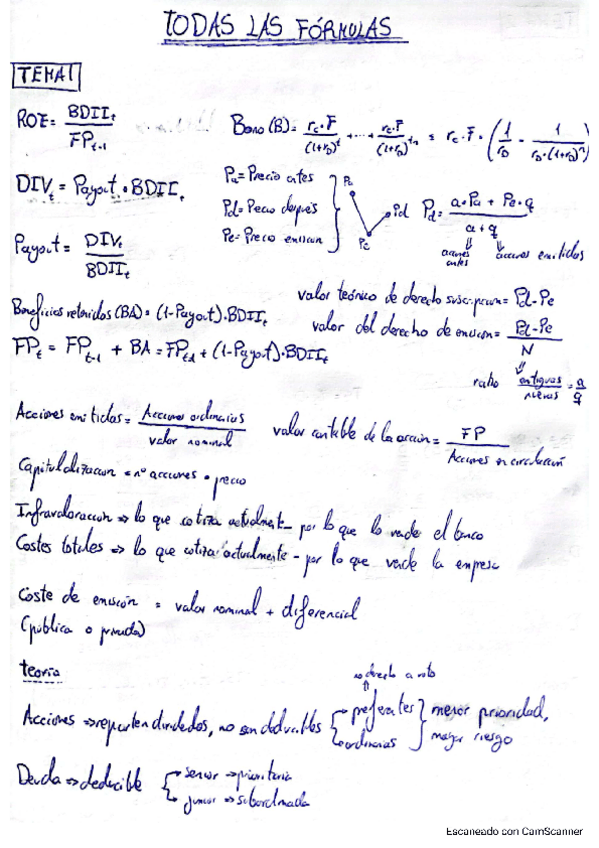 TODAS LAS FÓRMULAS
TEMA 1
ROE = BDII_t / FP_{t-1}
Bono (B) = r_c·F / (1+r_D)^t + ... + r_c·F / (1+r_D)^{tn} = r_c·F·(1/r_D - 1/(r_D·(1+r_D)^n)
DIV_t = Payout · BDII_t
Pa = Precio antes
Pd = Precio después
Pe = Precio emision
Pa
Pd
Pe
Pd = (a·Pa + Pe·q) / (a+q)
acciones antes
acciones emitidas
Payout = DIV_t / BDII_t
valor teórico de derecho suscripcion = Pd-Pe
Beneficios retenidos (BA) = (1-Payout)·BDII_t
valor del derecho de emisión = (Pd-Pe) / N
FP_t = FP_{t-1} + BA = FP_{t-1} + (1-Payout)·BDII_t
ratio antiguas / nuevas = a/q
Acciones emitidas = Acciones ordinarias / valor nominal
valor contable de la acción = FP / Acciones en circulación
Capitaldización = nº acciones · precio
Infravaloracion => lo que cotiza actualmente - por lo que lo vende el banco
Costes totales => lo que cotiza actualmente - por lo que vende la empresa
Coste de emisión = valor nominal + diferencial
(pública o privada)
teoría
no derecho a voto
Acciones => reparten dividendos, no son deducibles
preferentes
ordinarias
menor prioridad,
mayor riesgo
Deuda => deducible
senior => prioritaria
junior => subordinada
Escaneado con CamScanner